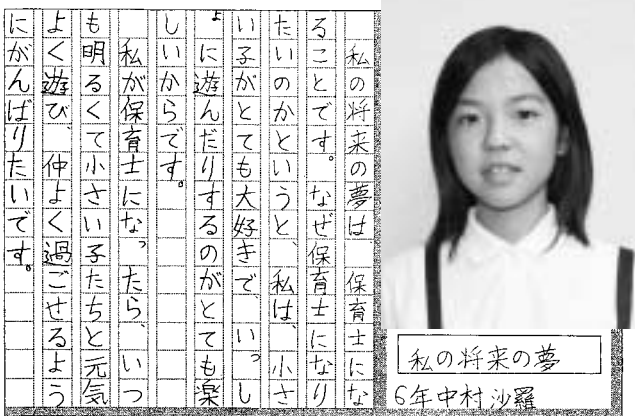 私の将来の夢
6年中村沙羅
私の将来の夢は 保育士にな
ることです。なぜ保育士になり
たいのかというと、私は、小さ
い子がとても大好きで、いっし
ょに遊んだりするのがとても楽
しいからです。
私が保育士になったら、いつ
も明るくて小さい子たちと元気
よく遊び、仲よく過ごせるよう
にがんばりたいです。